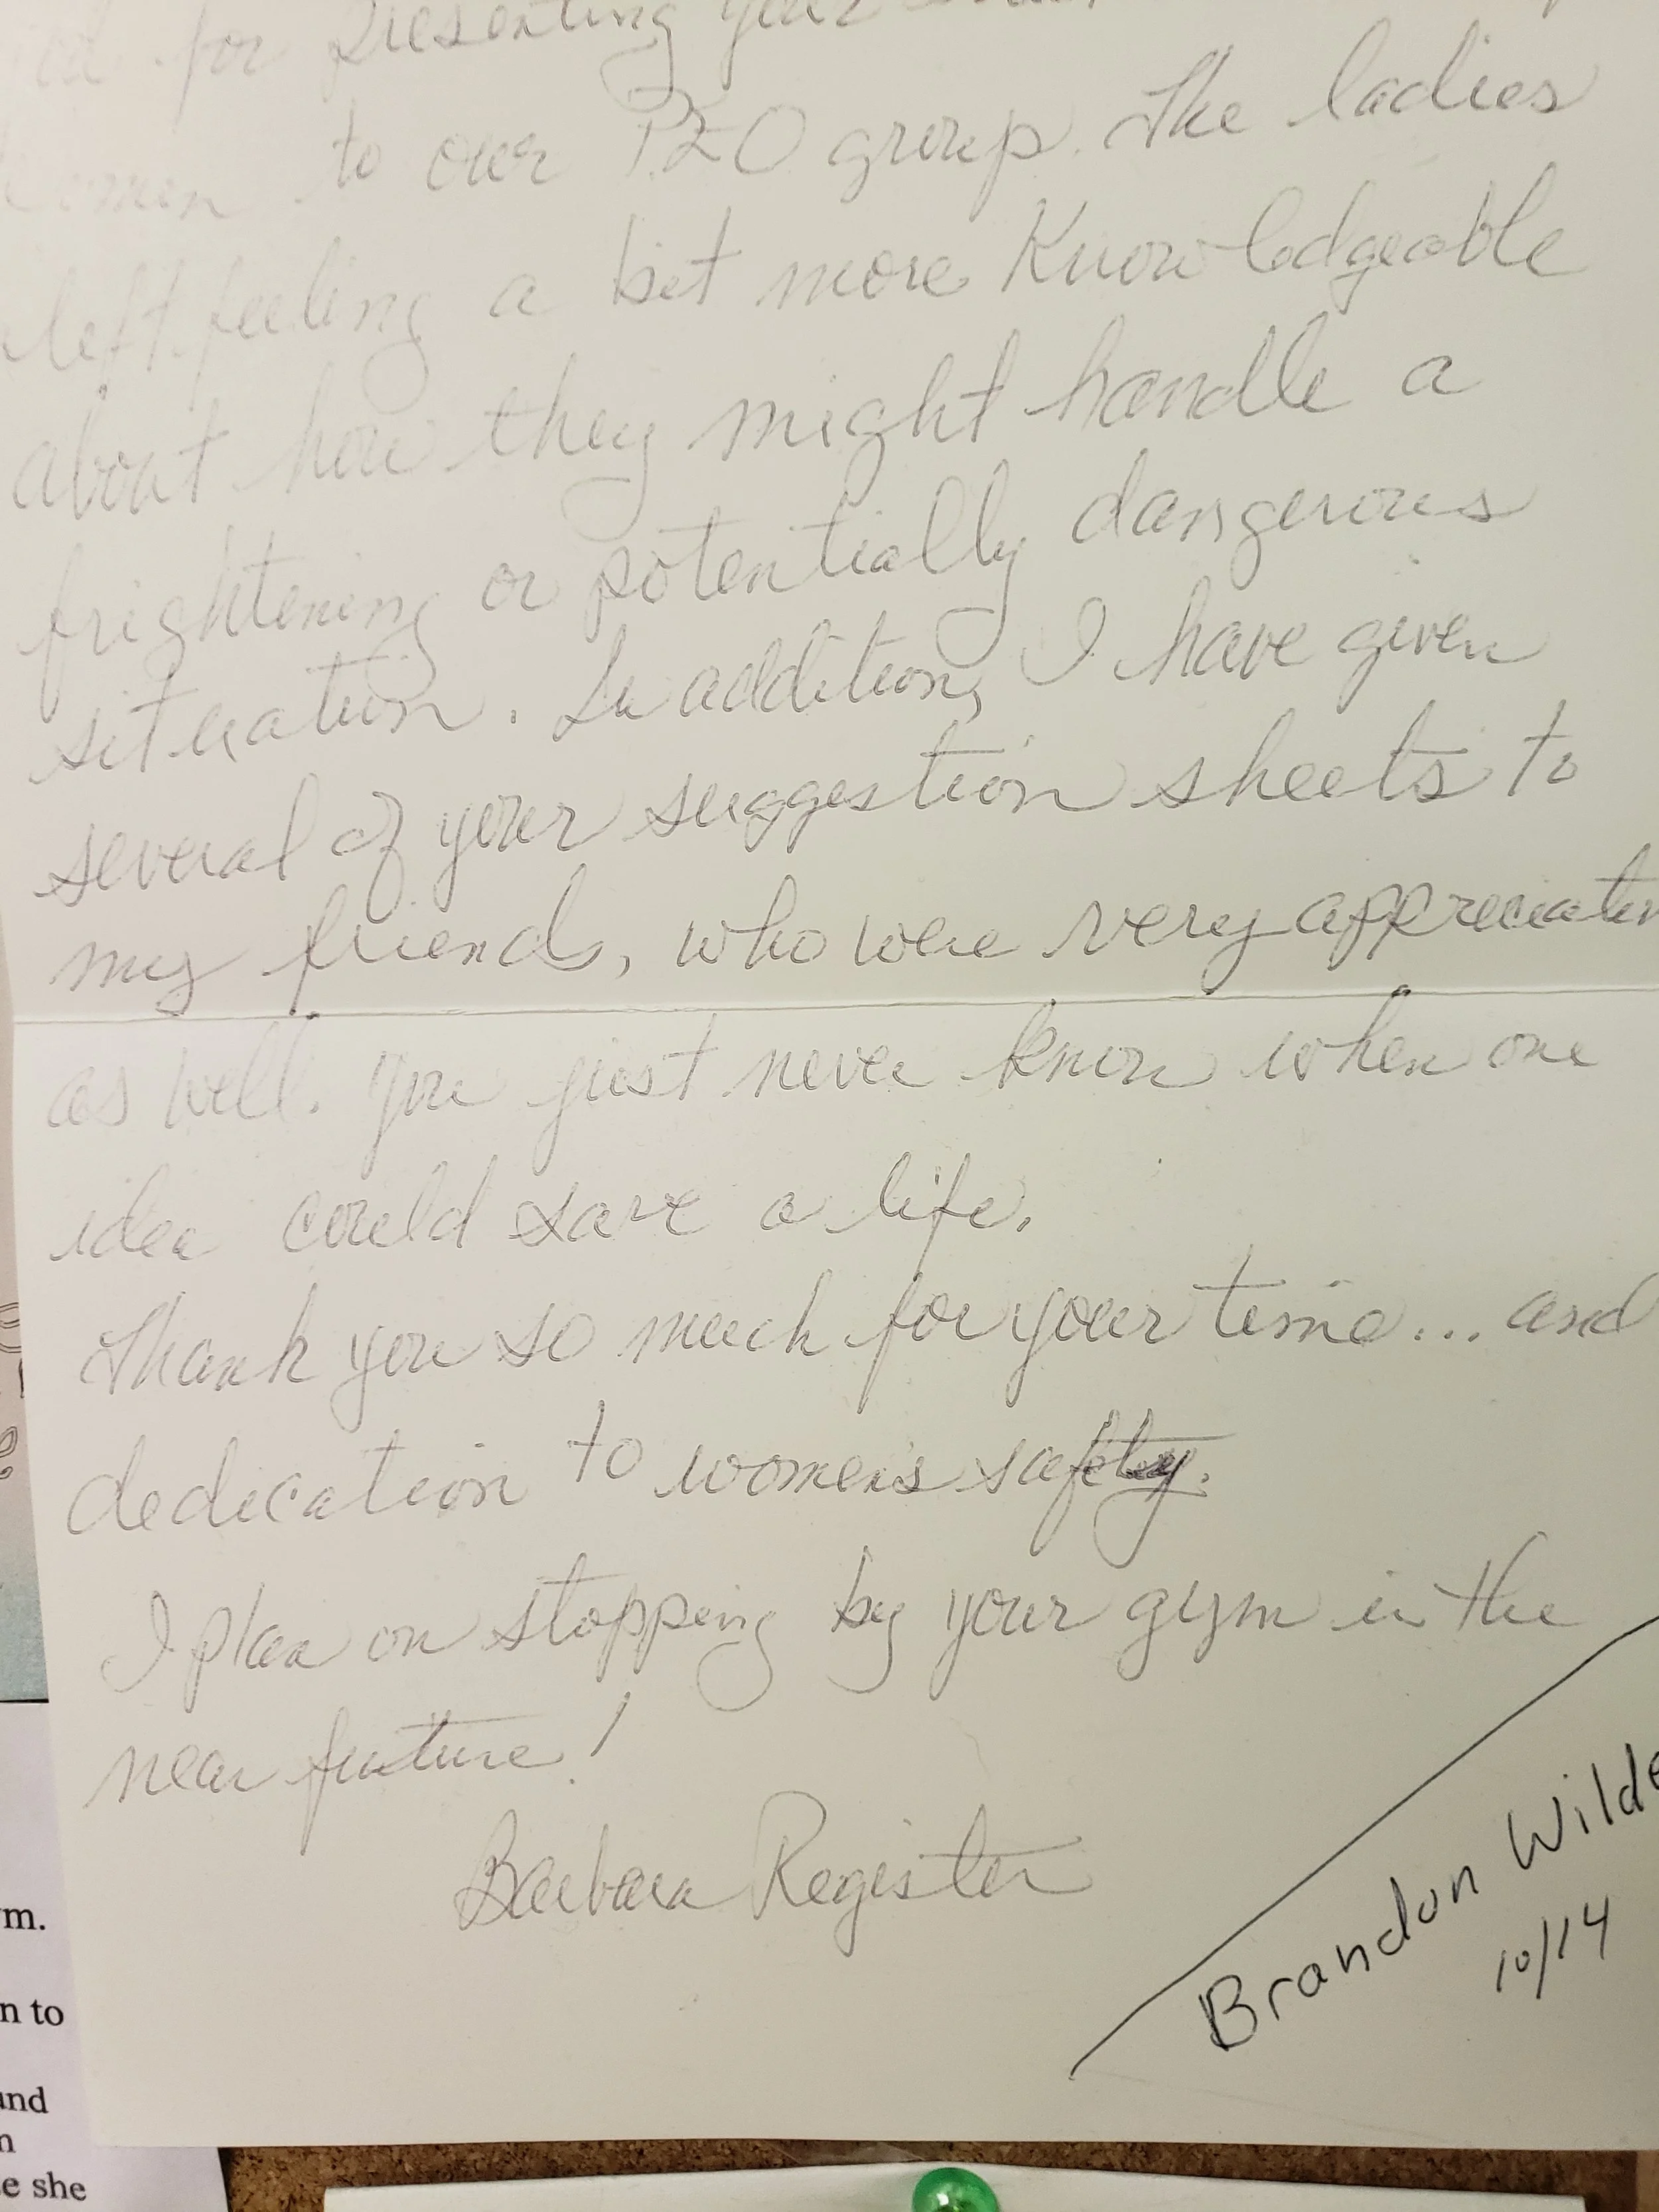 for presenting your
to our PEO group. The ladies
left feeling a bit more Knowledgeable
about how they might handle a
frightening or potentially dangerous
situation. In addition, I have given
several of your suggestion sheets to
my friends, who were very appreciative
as well. You just never know when one
idea could save a life.
Thank you so much for your time... and
dedication to women's safety.
I plan on stopping by your gym in the
near future!
Barbara Register
Brandon Wilde
10/14
m.
n to
und
n
e she